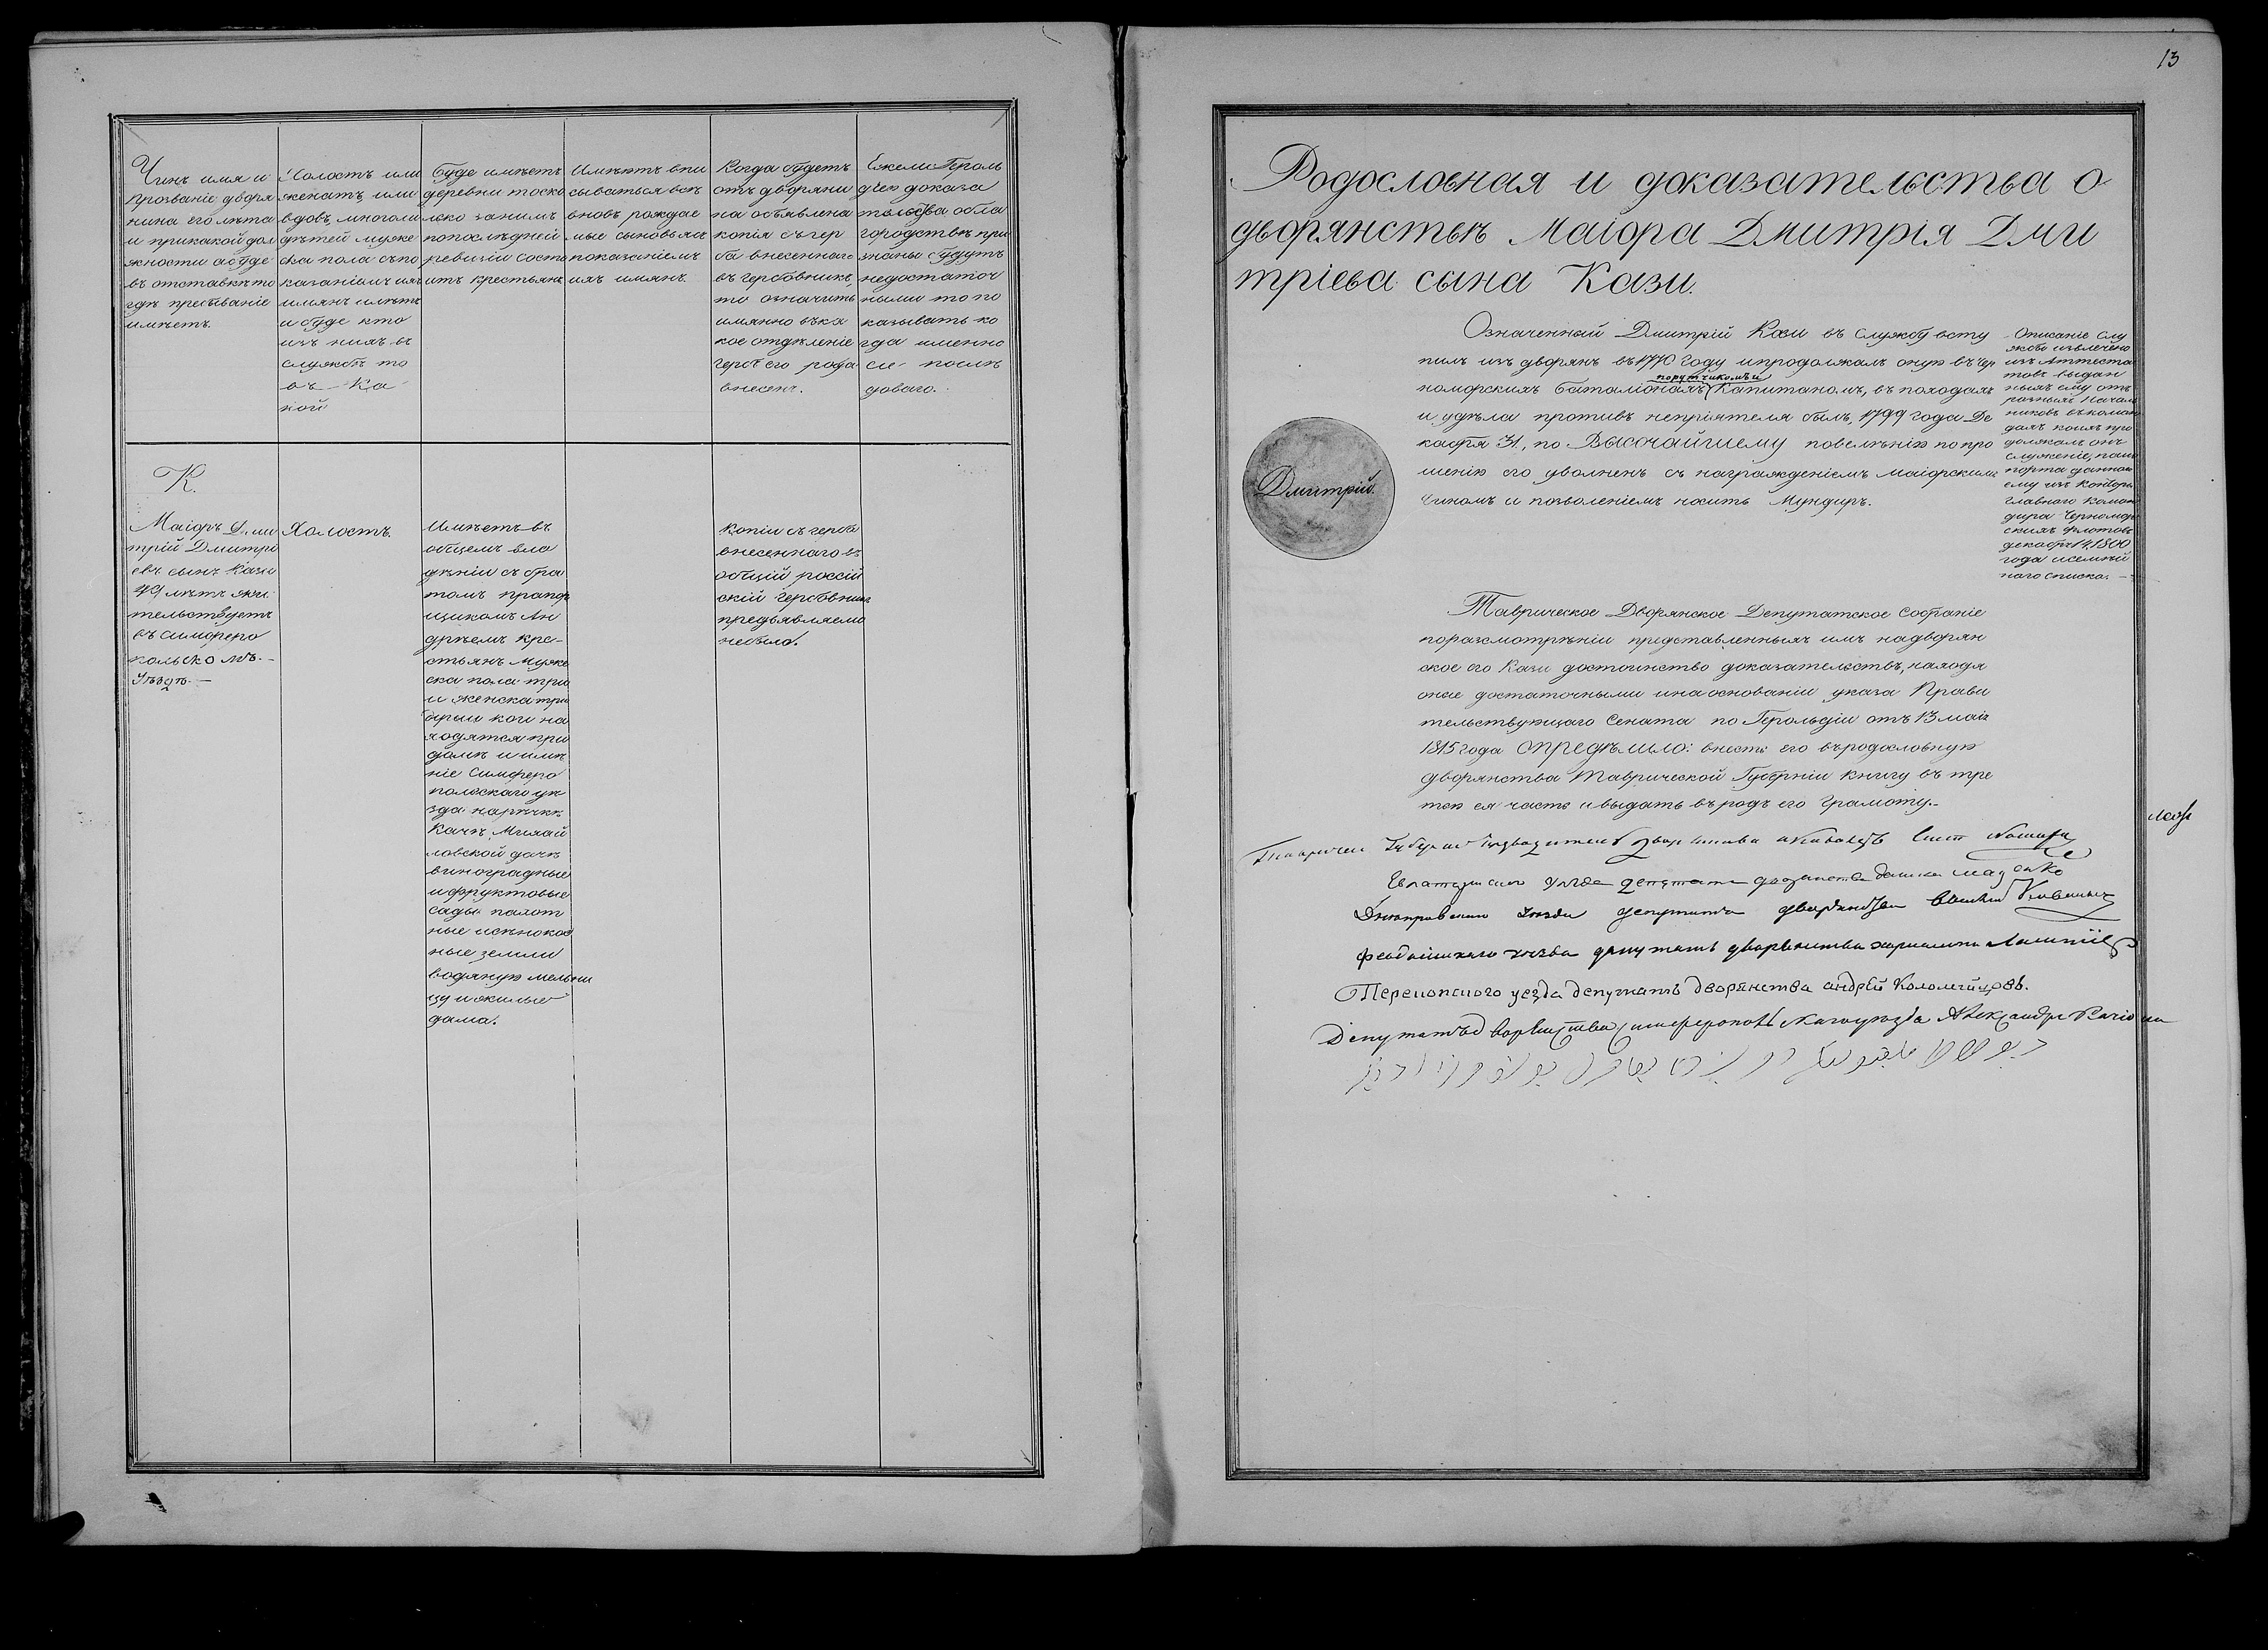 Чинъ имя и
прозваніе дворя
нина его лѣта
и прикакой дол
жности абуде
въ отставкѣ то
гдѣ пребываніе
имѣетъ.
Холостъ или
женатъ, или
вдовъ, многоли
дѣтей муже
ска пола съпо
казаніемъ ихъ
имянъ имѣетъ
и буде кто
изъ нихъ въ
службѣ то
въ – ка
кой
Буде имѣетъ
деревни тоско
лько занимъ
попослѣдней
ревизіи состо
итъ крестьянъ
Имѣютъ впи
сываться всѣ
вновь рождае
мые сыновья съ
показаніемъ
ихъ имянъ.
Когда будетъ
отъ дворяни
на объявлена
копія съгер
ба внесеннаго
въ гербовникъ,
то означить
имянно въка
кое отдѣленіе
гербъ его рода
внесенъ.
Ежели Героль
діею доказа
тельства обла
городствѣ при
знаны будутъ
недостаточ
ными то по
казывать ко
гда именно
сіе послѣ
довало.
К.
Маіоръ Дми
трій Дмитрі
евъ сынъ Кази
49 лѣтъ жи
тельствуетъ
въ симферо
польскомъ.–
Уѣздѣ.–
Холостъ.
Имѣетъ въ
общемъ вла
дѣніи съ бра
томъ прапор
щикомъ Ан
дрѣемъ кре–
стьянъ муже
ска пола три
и женска три
души кои на
ходятся при
домѣ и имѣ
ніе Симферо
польскаго уѣ
зда нарѣчкѣ
Качѣ, Михай
ловской дачѣ
виноградные
ифруктовые
сады пахот
ные исѣнокос
ные земли
водяную мельни
цу ижилые
дома.
Копіи съ герба
внесеннаго въ
общій россій
скій Гербовникъ
предъявляемо
небыло.
13
Родословная и доказательства о
дворянствѣ Маіора Дмитрія Дми
тріева сына Кази.
Означенный Дмитрій Кази въ службу всту
пилъ изъ дворянъ въ1770 году ипродолжалъ оную въ Чер
поручикомъ и
номорскихъ баталіонахъ Капитаномъ, въ походахъ
и удѣла противъ непріятеля былъ, 1799 года Де
кабря 31, по Высочайшему повелѣнію по про
шенію его уволненъ съ награжденіемъ маіорскимъ
чиномъ и позволеніемъ носить Мундиръ.
Описаніе слу
жбы извлечено
изъ Аттеста
товъ выдан
ныхъ ему отъ
разныхъ Началь
никовъ въкоман
дахъ коихъ про
должалъ онъ
служеніе, паш
порта даннаго
ему изъ Конторы
Главнаго коман
дира Черномор
скихъ флотовъ
декабря 14, 1800
года исемей
наго списка.–
Дмитрій.
Таврическое Дворянское Депутатское Собраніе
поразсмотрѣніи представленныхъ имъ надворян
ское его Кази достоинство доказательствъ, находя
оные достаточными инаосновании указа Прави
тельствующаго Сената по Герольдіи отъ 13 маія
1815 года опредѣлило: внести его въродословную
дворянства Таврической Губерніи книгу въ тре
тью ея часть ивыдать въродъ его Грамоту.–
Евпаторійского Уѣзда депутатъ дворянства
Днепровскаго уѣзда депутатъ дворянства
Феодосійскаго уѣзда депутатъ дворянства
Перекопского уезда депутатъ дворянства андрей Коломейцовъ.
Депутатъ дворянства симферопольскаго уѣзда Александръ